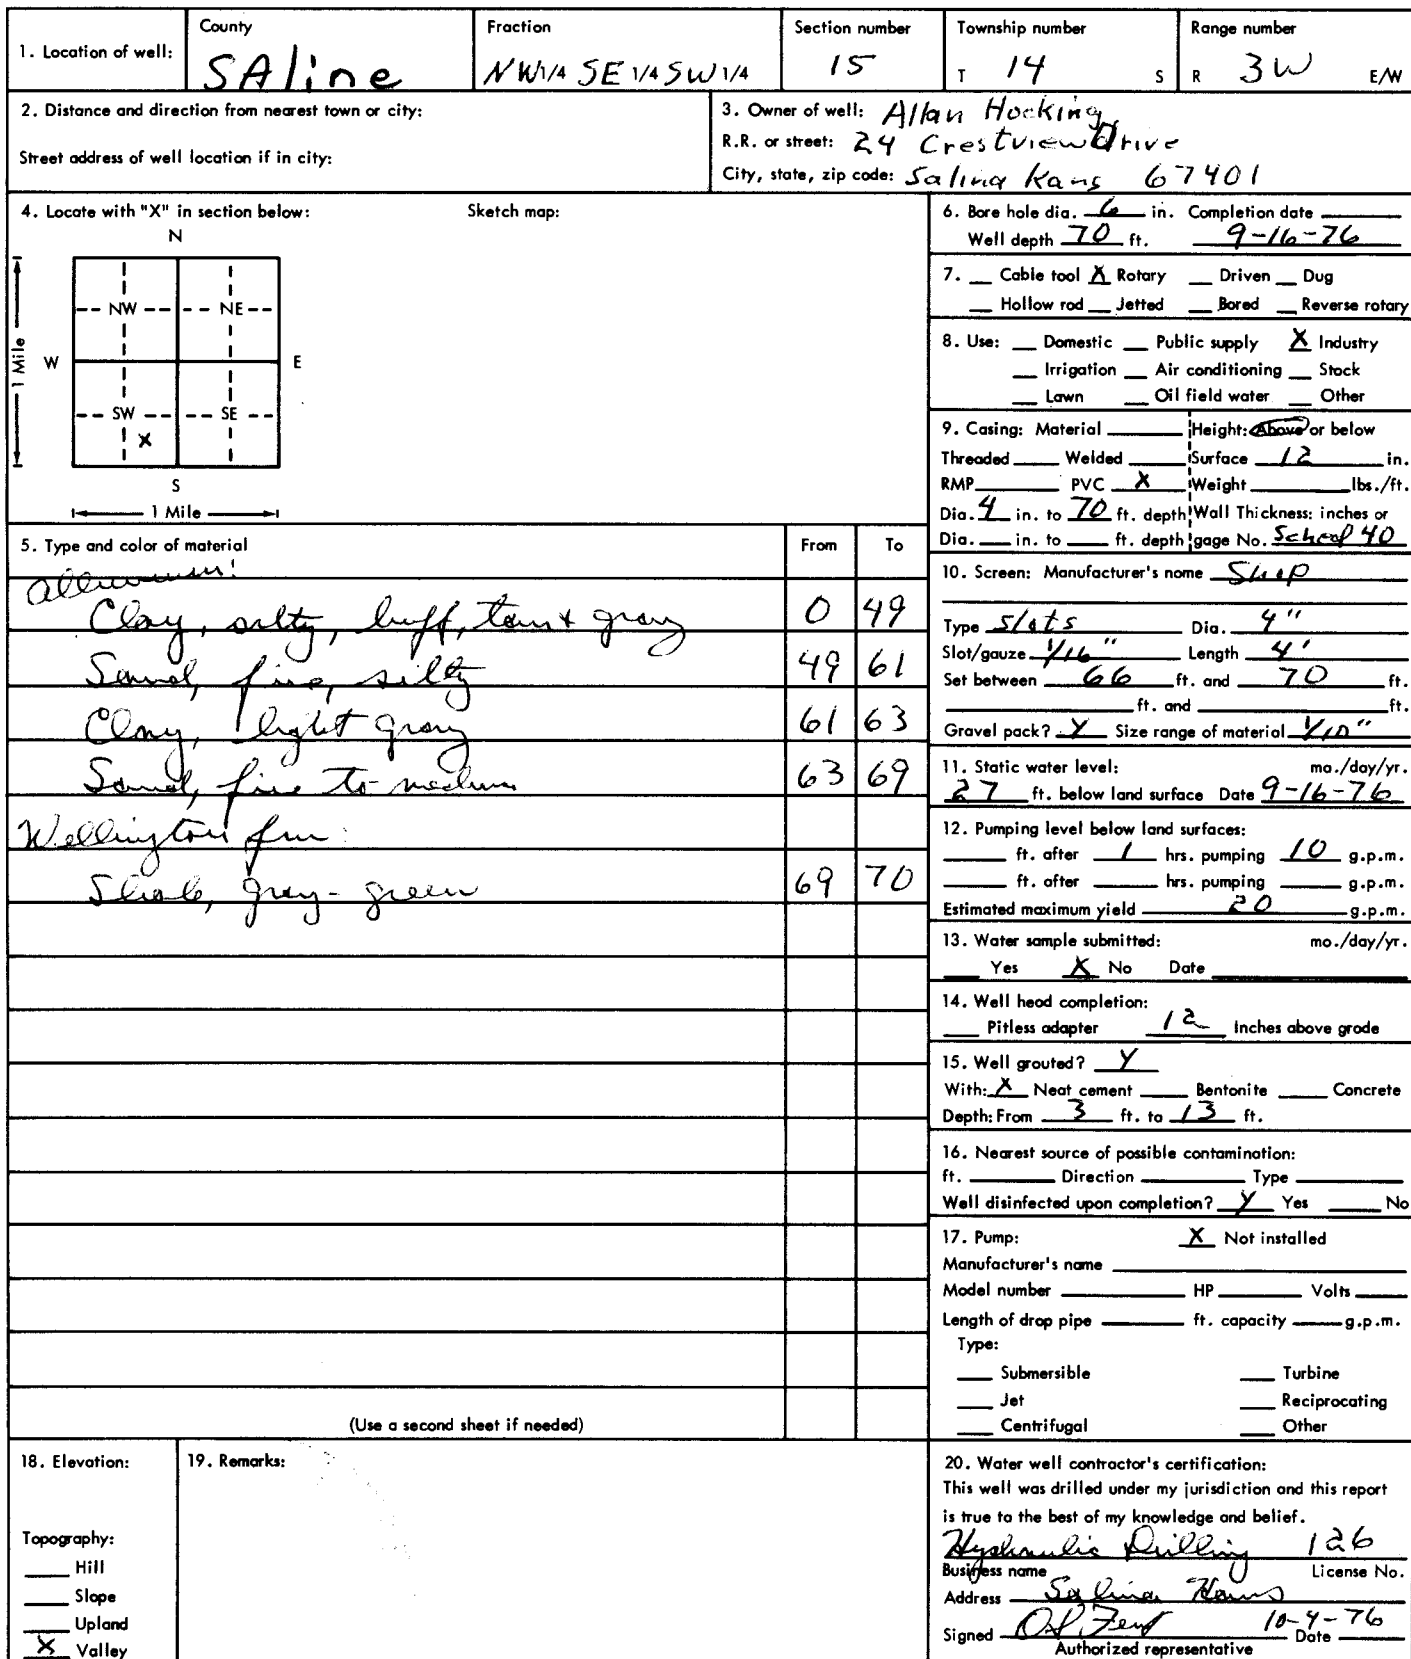 1. Location of well:
County
SAline
Fraction
NW 1/4 SE 1/4 SW 1/4
Section number
15
Township number
T 14 S
Range number
R 3W E/W
2. Distance and direction from nearest town or city:
Street address of well location if in city:
3. Owner of well: Allan Hocking,
R.R. or street: 24 Crestview Drive
City, state, zip code: Salina Kans 67401
4. Locate with "X" in section below: Sketch map:
N
NW NE
W E
1 Mile
SW SE
X
S
1 Mile
5. Type and color of material From To
Clay, silty, buff, tan + gray 0 49
Sand, fine, silty 49 61
Clay, light gray 61 63
Sand, fine to medium 63 69
Wellington fm:
Shale, gray-green 69 70
(Use a second sheet if needed)
6. Bore hole dia. 6 in. Completion date
Well depth 70 ft. 9-16-76
7. Cable tool X Rotary Driven Dug
Hollow rod Jetted Bored Reverse rotary
8. Use: Domestic Public supply X Industry
Irrigation Air conditioning Stock
Lawn Oil field water Other
9. Casing: Material Height: Above or below
Threaded Welded Surface 12 in.
RMP PVC X Weight lbs./ft.
Dia. 4 in. to 70 ft. depth Wall Thickness: inches or
Dia. in. to ft. depth gage No. 40
10. Screen: Manufacturer's name Shop
Type Slots Dia. 4"
Slot/gauze 1/16" Length 4'
Set between 66 ft. and 70 ft.
ft. and ft.
Gravel pack? Y Size range of material 1/10"
11. Static water level: mo./day/yr.
27 ft. below land surface Date 9-16-76
12. Pumping level below land surfaces:
ft. after 1 hrs. pumping 10 g.p.m.
ft. after hrs. pumping g.p.m.
Estimated maximum yield 20 g.p.m.
13. Water sample submitted: mo./day/yr.
Yes X No Date
14. Well head completion:
Pitless adapter 12 Inches above grade
15. Well grouted? Y
With: X Neat cement Bentonite Concrete
Depth: From 3 ft. to 13 ft.
16. Nearest source of possible contamination:
ft. Direction Type
Well disinfected upon completion? Y Yes No
17. Pump: X Not installed
Manufacturer's name
Model number HP Volts
Length of drop pipe ft. capacity g.p.m.
Type:
Submersible Turbine
Jet Reciprocating
Centrifugal Other
18. Elevation:
Topography:
Hill
Slope
Upland
X Valley
19. Remarks:
20. Water well contractor's certification:
This well was drilled under my jurisdiction and this report
is true to the best of my knowledge and belief.
Hydraulic Drilling 126
Business name License No.
Address Salina Kans
Signed 10-4-76 Date
Authorized representative